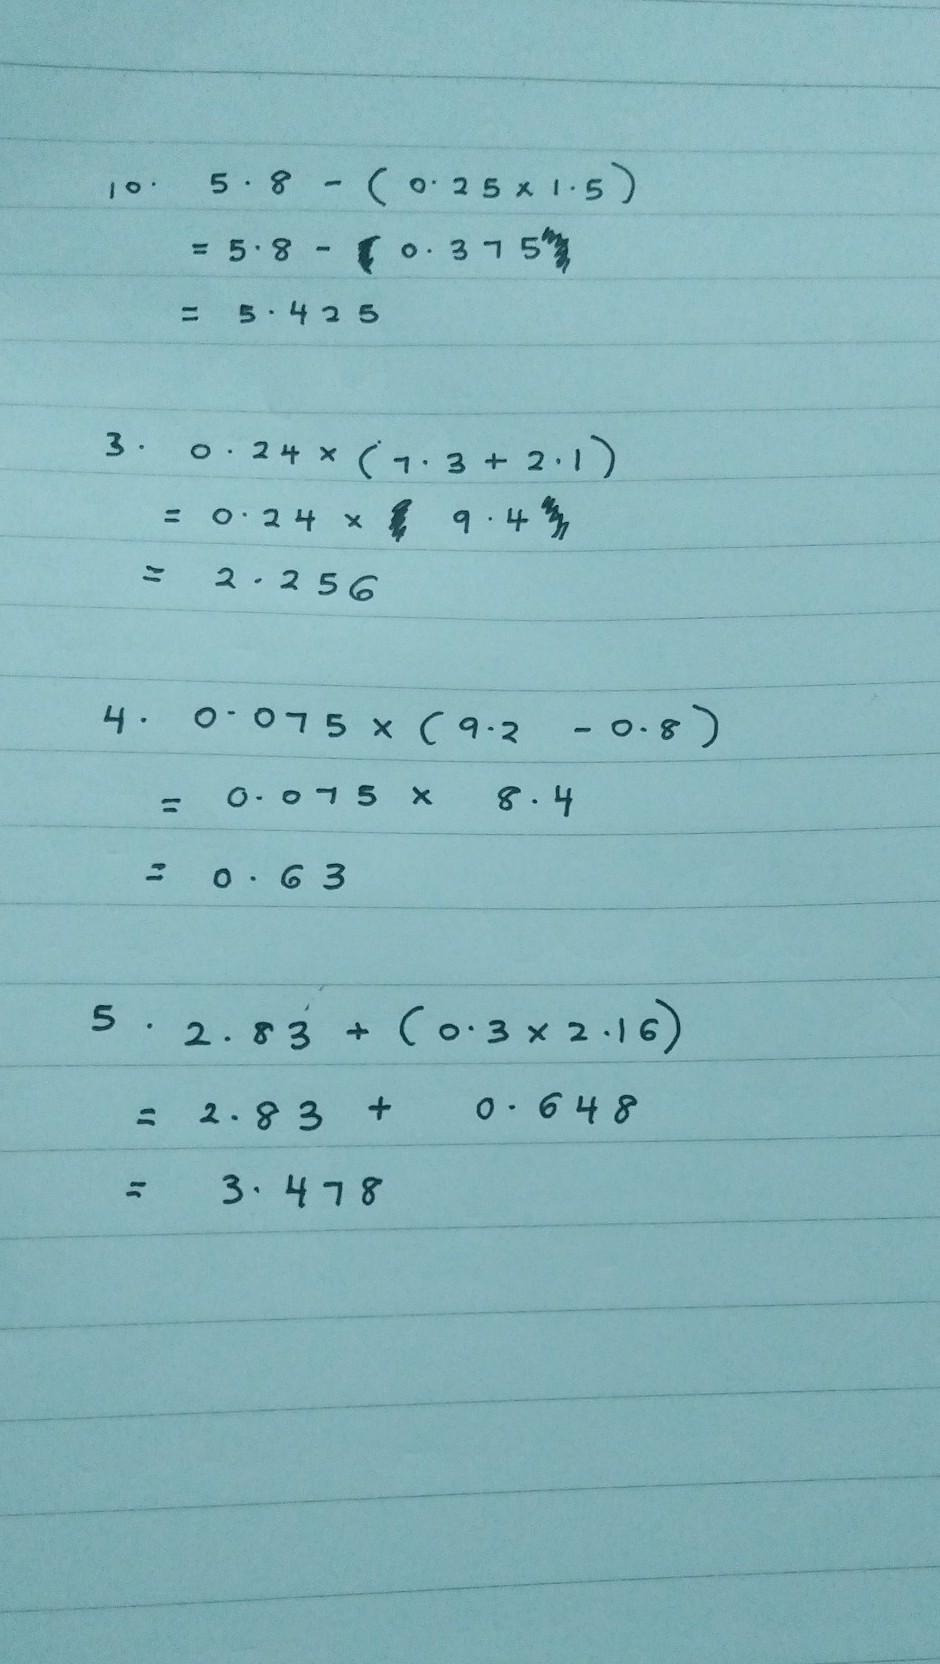 10. 5.8 - (0.25 × 1.5)
= 5.8 - 0.375
= 5.425
3. 0.24 × (7.3 + 2.1)
= 0.24 × 9.4
= 2.256
4. 0.075 × (9.2 - 0.8)
= 0.075 × 8.4
= 0.63
5. 2.83 + (0.3 × 2.16)
= 2.83 + 0.648
= 3.478